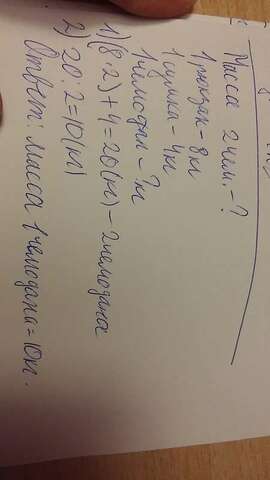 Масса 2 чем. - ?
1 рюкзак - 8 кг
1 сумка - 4 кг
1 чемодан - ? кг
1) (8·2)+4=20(кг) - 2 чемодана
2) 20:2=10(кг)
Ответ: масса 1 чемодана = 10 кг.